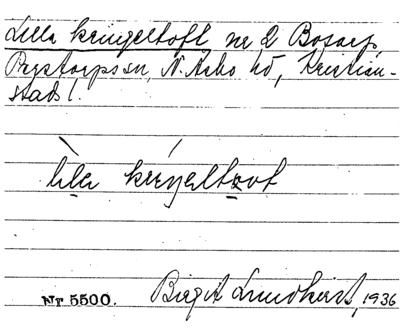 Lilla Kringeltoft nr 2 Bosarp,
Perstorps sn, N. Åsbo hd, Kristian-
stads l.
lila kriŋeltoft
Nr 5500. Birgit Lundkvist, 1936